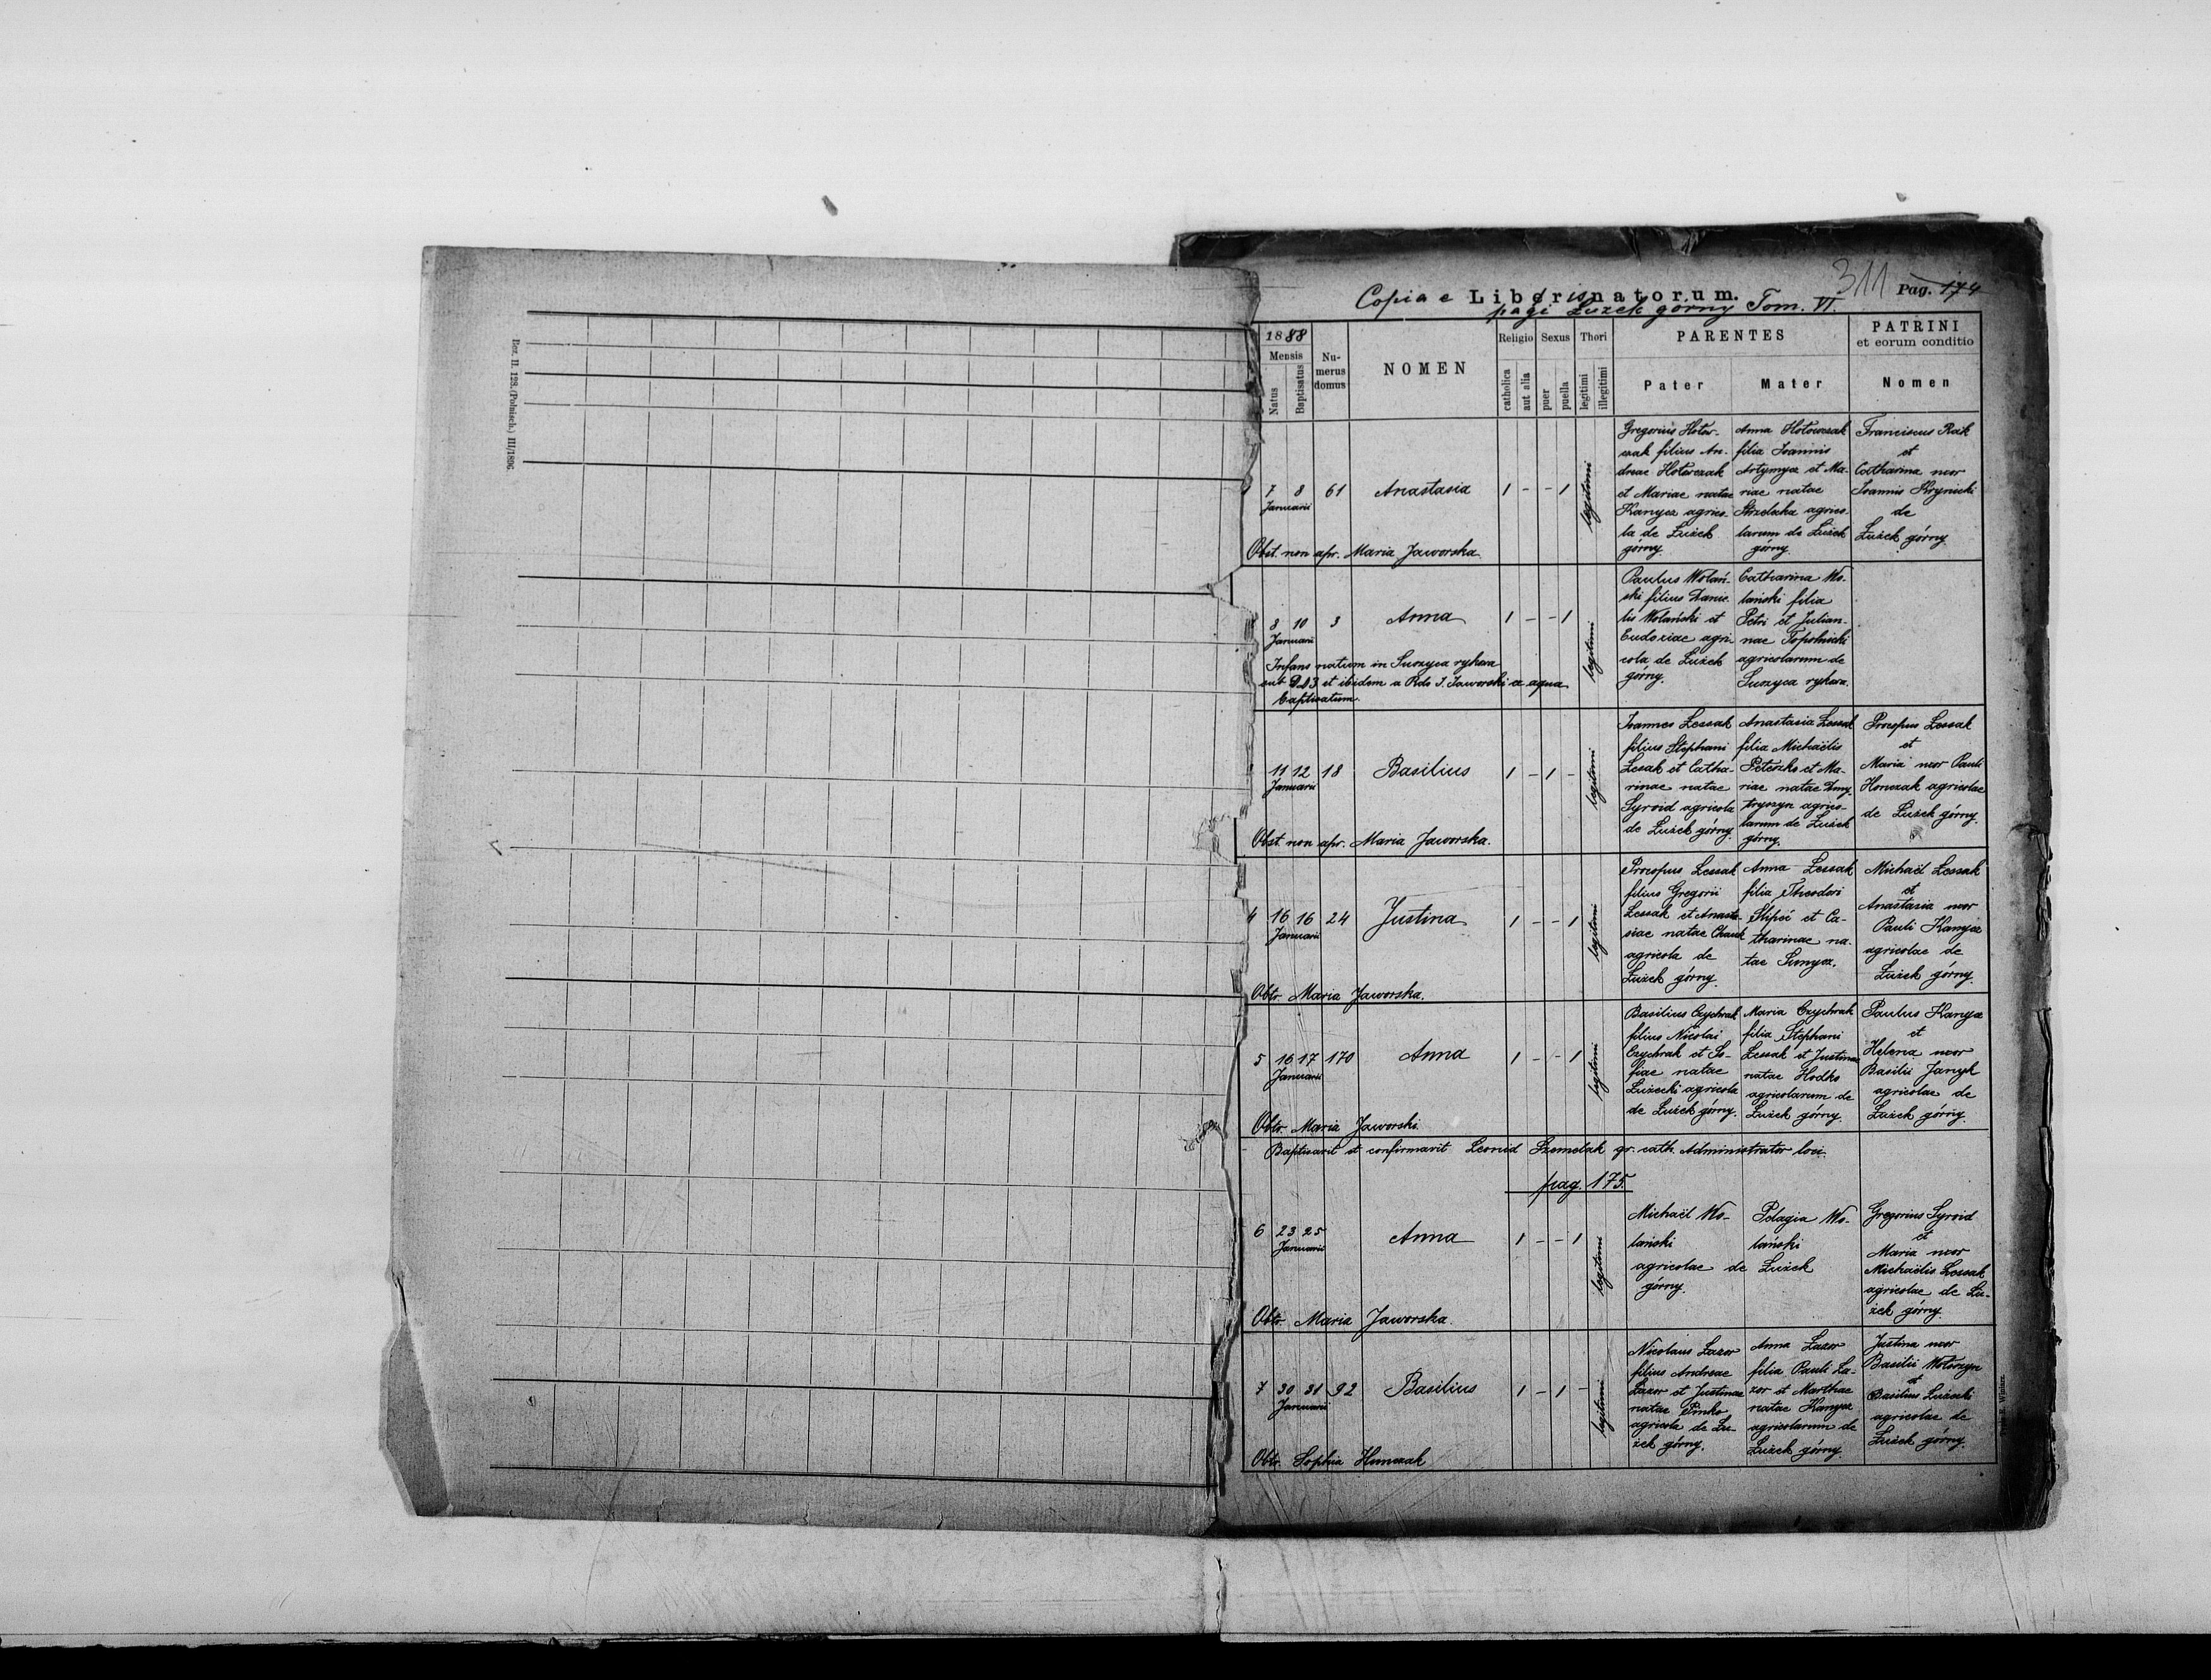 Ber. II. 123. (Polnisch.) III/1896.
311 Pag. 174
Copia e Libris natorum.
pagi Łużek górny Tom. VI.
1888
Mensis
Natus
Baptisatus
Numerus domus
NOMEN
Religio
catholica
aut alia
Sexus
puer
puella
Thori
legitimi
illegitimi
PARENTES
Pater
Mater
PATRINI
et eorum conditio
Nomen
7 8 61 Anastasia 1 - - 1 legitimi
Januarii
Gregorius Hotow-
czak filius An-
dreae Hotowczak
et Mariae natae
Kanycz agrico-
la de Łużek
górny
Anna Hotowczak
filia Joannis
Artymycz et Ma-
riae natae
Strzelzka agrico-
larum de Łużek
górny.
Franciscus Rak
et
Catharina uxor
Joannis Krynicki
de
Łużek górny
Obst. non apr. Maria Jaworska.
8 10 3 Anna 1 - - 1 legitimi
Januarii
Paulus Wolań-
ski filius Danie-
lis Wolański et
Eudoxiae agri-
cola de Łużek
górny.
Catharina Wo-
lański filia
Petri et Julian-
nae Topolnicki
agricolarum de
Suszyca rykowa.
Infans natum in Suszyca rykowa
sub D. 23 et ibidem a Rdo J. Jaworski ex aqua
baptisatum.
11 12 18 Basilius 1 - 1 - legitimi
Januarii
Joannes Lessak
filius Stephani
Lesak et Catha-
rinae natae
Syroid agricola
de Łużek górny.
Anastasia Lessak
filia Michaëlis
Peteszko et Ma-
riae natae Dmy-
tryszyn agrico-
larum de Łużek
górny.
Procopius Lessak
et
Maria uxor Pauli
Honczak agricolae
de Łużek górny.
Obst non apr. Maria Jaworska.
4 16 16 24 Justina 1 - - 1 legitimi
Januarii
Procopius Lessak
filius Gregorii
Lessak et Anasta-
siae natae
agricola de
Łużek górny.
Anna Lessak
filia Theodori
et Ca-
tharinae na-
tae
Michaël Lessak
et
Anastasia uxor
Pauli Kanycz
agricolae de
Łużek górny.
Obtr Maria Jaworska.
5 16 17 170 Anna 1 - - 1 legitimi
Januarii
Basilius Czychrak
filius Nicolai
Czychrak et So-
fiae natae
Łużecki agricola
de Łużek górny.
Maria Czychrak
filia Stephani
Lessak et Justinae
natae Hodko
agricolarum de
Łużek górny.
Paulus Kanycz
et
Helena uxor
Basilii Janyk
agricolae de
Łużek górny.
Obtr. Maria Jaworski.
Baptisavit et confirmavit Leonid Szemelak gr. cath. Administrator loci.
pag. 175.
6 23 25 Anna 1 - - 1 legitimi
Januarii
Michaël Wo-
lański
Pelagia Wo-
lański
agricolae de Łużek
górny.
Gregorius Syroid
et
Maria uxor
Michaëlis Lessak
agricolae de Łu-
żek górny.
Obtr. Maria Jaworska.
7 30 31 92 Basilius 1 - 1 - legitimi
Januarii
Nicolaus Łazor
filius Andreae
Łazor et Justinae
natae Pinko
agricola de Łu-
żek górny.
Anna Łazor
filia Pauli Ła-
zor et Marthae
natae Kanycz
agricolarum de
Łużek górny.
Justina uxor
Basilii Wołoszyn
et
Basilius Łużecki
agricolae de
Łużek górny.
Obtr. Sophia Hunczak